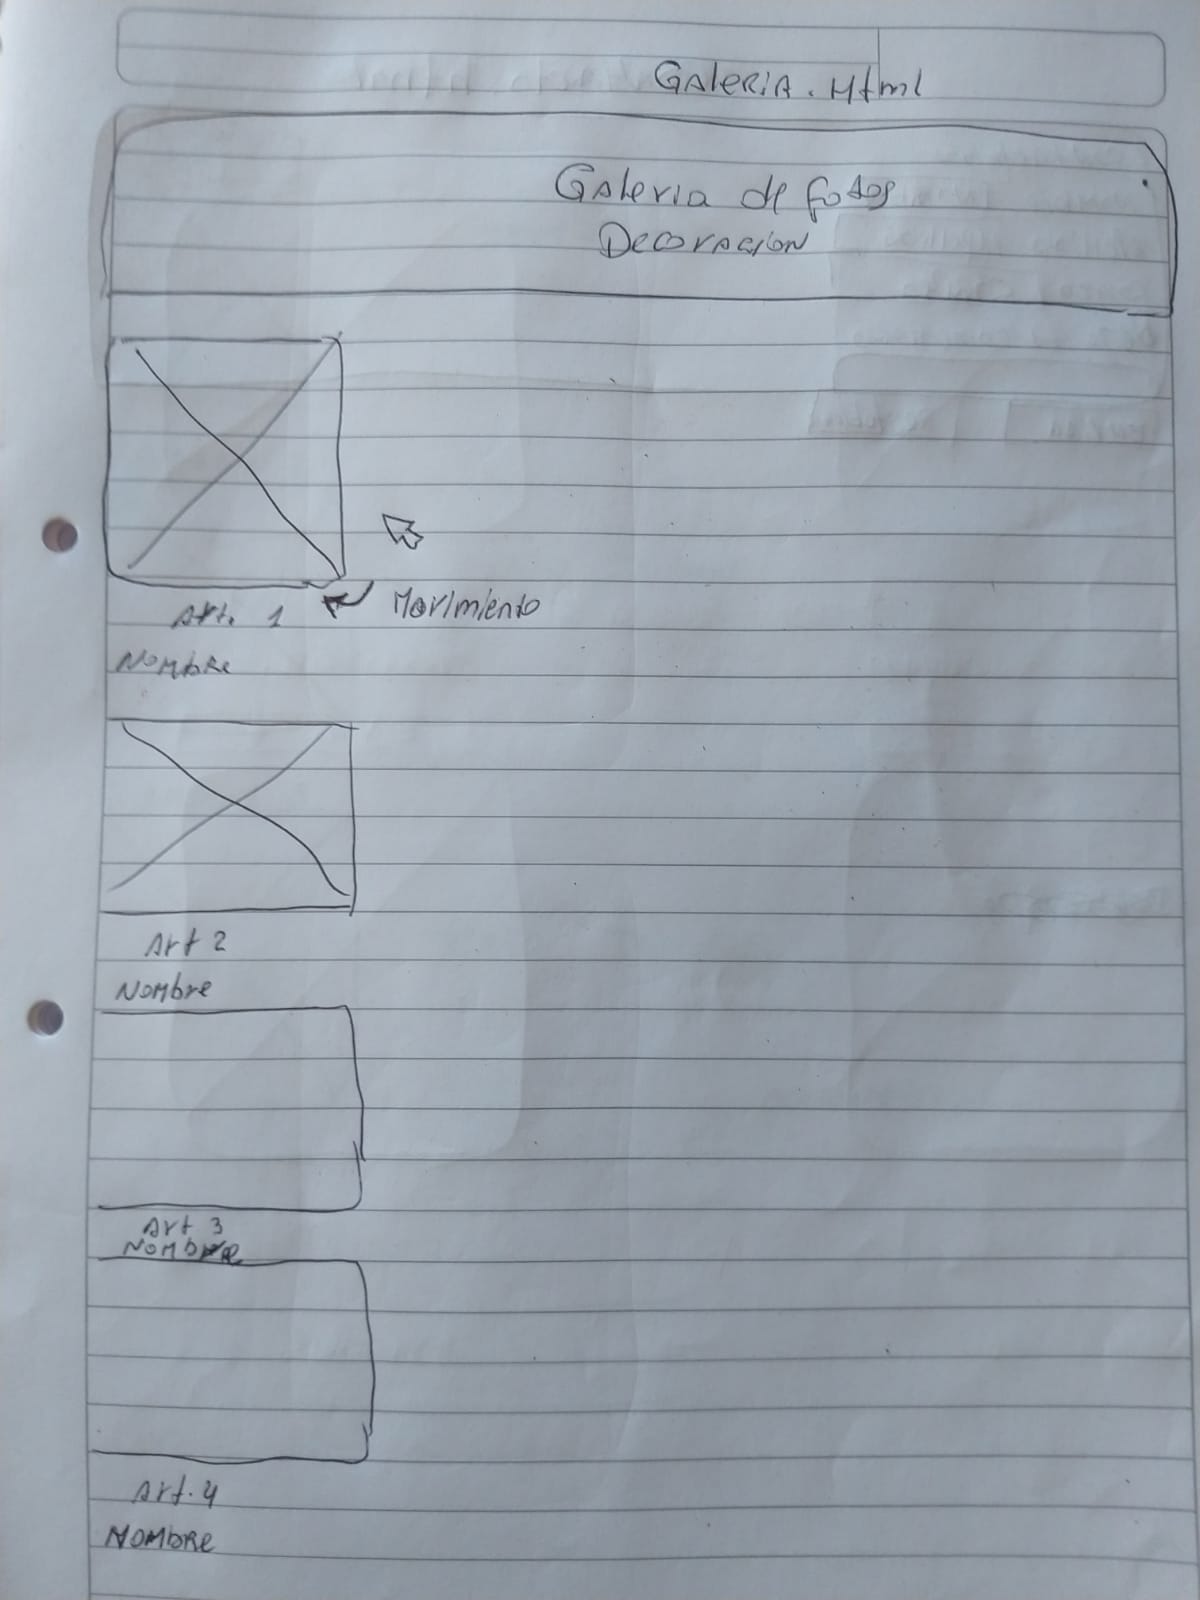 Galeria.Html
Galeria de fotos
Decoracion
Art. 1
Movimiento
Nombre
Art 2
Nombre
Art 3
Nombre
Art. 4
Nombre